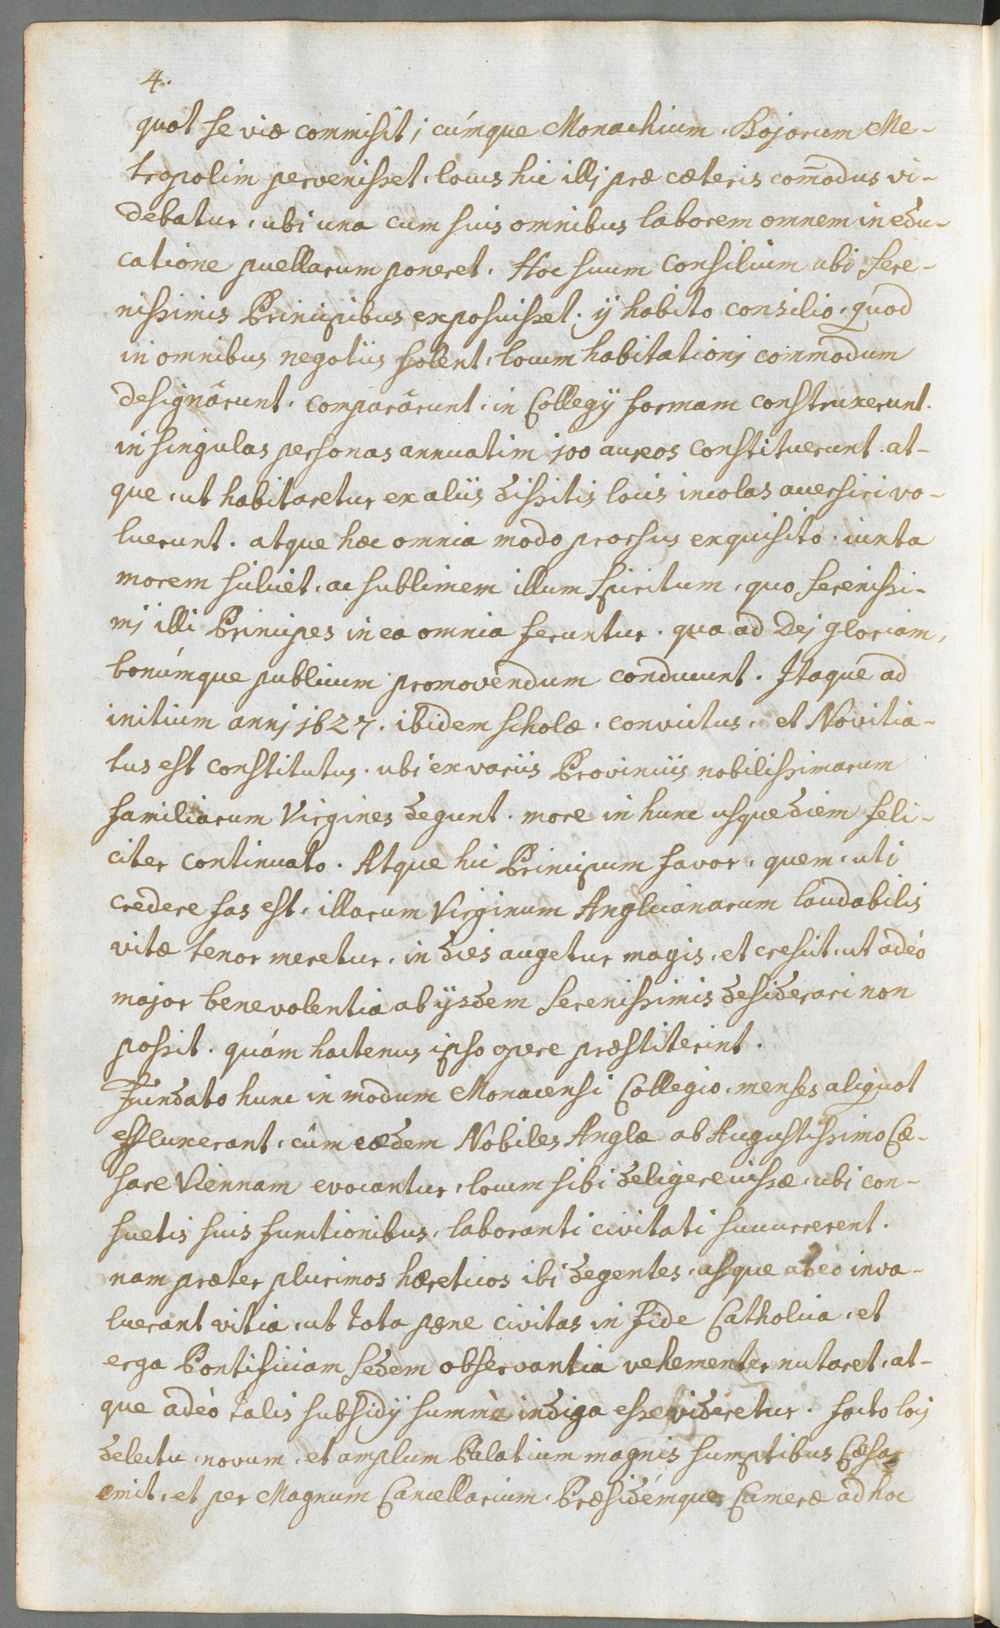 4.
quot se viæ commisit; cúmque Monachium, Bojorum Me-
tropolim pervenisset, locus hic illj præ cæteris com̄odus vi-
debatur, ubi una cum suis omnibus laborem omnem in edu-
catione puellarum poneret. Hoc suum consilium ubi Sere-
nissimis Principibus exposuisset, ij habito consilio, quod
in omnibus negotiis solent, locum habitationj commodum
designârunt, comparârunt, in Collegij formam construxerunt,
in singulas personas annuatim 100 aureos constituerunt, at-
que, ut habitaretur ex aliis dissitis locis incolas accersiri vo-
luerunt. atque hæc omnia modo prorsus exquisito, iuxta
morem scilicet, ac sublimem illum Spiritum, quo Serenissi-
mj illi Principes in ea omnia feruntur, quæ ad Dej gloriam,
bonúmque publicum promovendum conducunt. Itaque ad
initium annj 1627. ibidem scholæ, convictus, et Novitia-
tus est constitutus, ubi ex variis Provinciis nobilissimarum
familiarum Virgines degunt, more in hunc usque diem feli-
citer continuato. Atque hic Principum favor, quem, uti
credere fas est, illarum Virginum Anglicanarum laudabilis
vitæ tenor meretur, in dies augetur magis, et crescit, ut adeò
major benevolentia ab ijsdem Serenissimis desiderari non
possit, quám hactenus ipso opere præstiterint.
Fundato hunc in modum Monacensi Collegio, menses aliquot
effluxerant, cùm eædem Nobiles Anglæ ab Augustissimo Cæ-
sare Viennam evocantur, locum sibi deligere iussæ, ubi con-
suetis suis functionibus, laboranti civitati succurrerent.
nam præter plurimos hæreticos ibi degentes, usque adeò inva-
luerant vitia, ut tota pæne civitas in Fide Catholica, et
erga Pontificiam Sedem observantia vehementer nutaret, at-
que adeò talis subsidij summè indiga esse videretur. facto locj
delectu, novum, et amplum Palatium magnis sumptibus Cæsar
emit, et per Magnum Cancellarium, Præsidémque Cameræ ad hoc